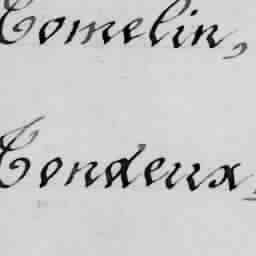 Tomelin,
Tondeux,